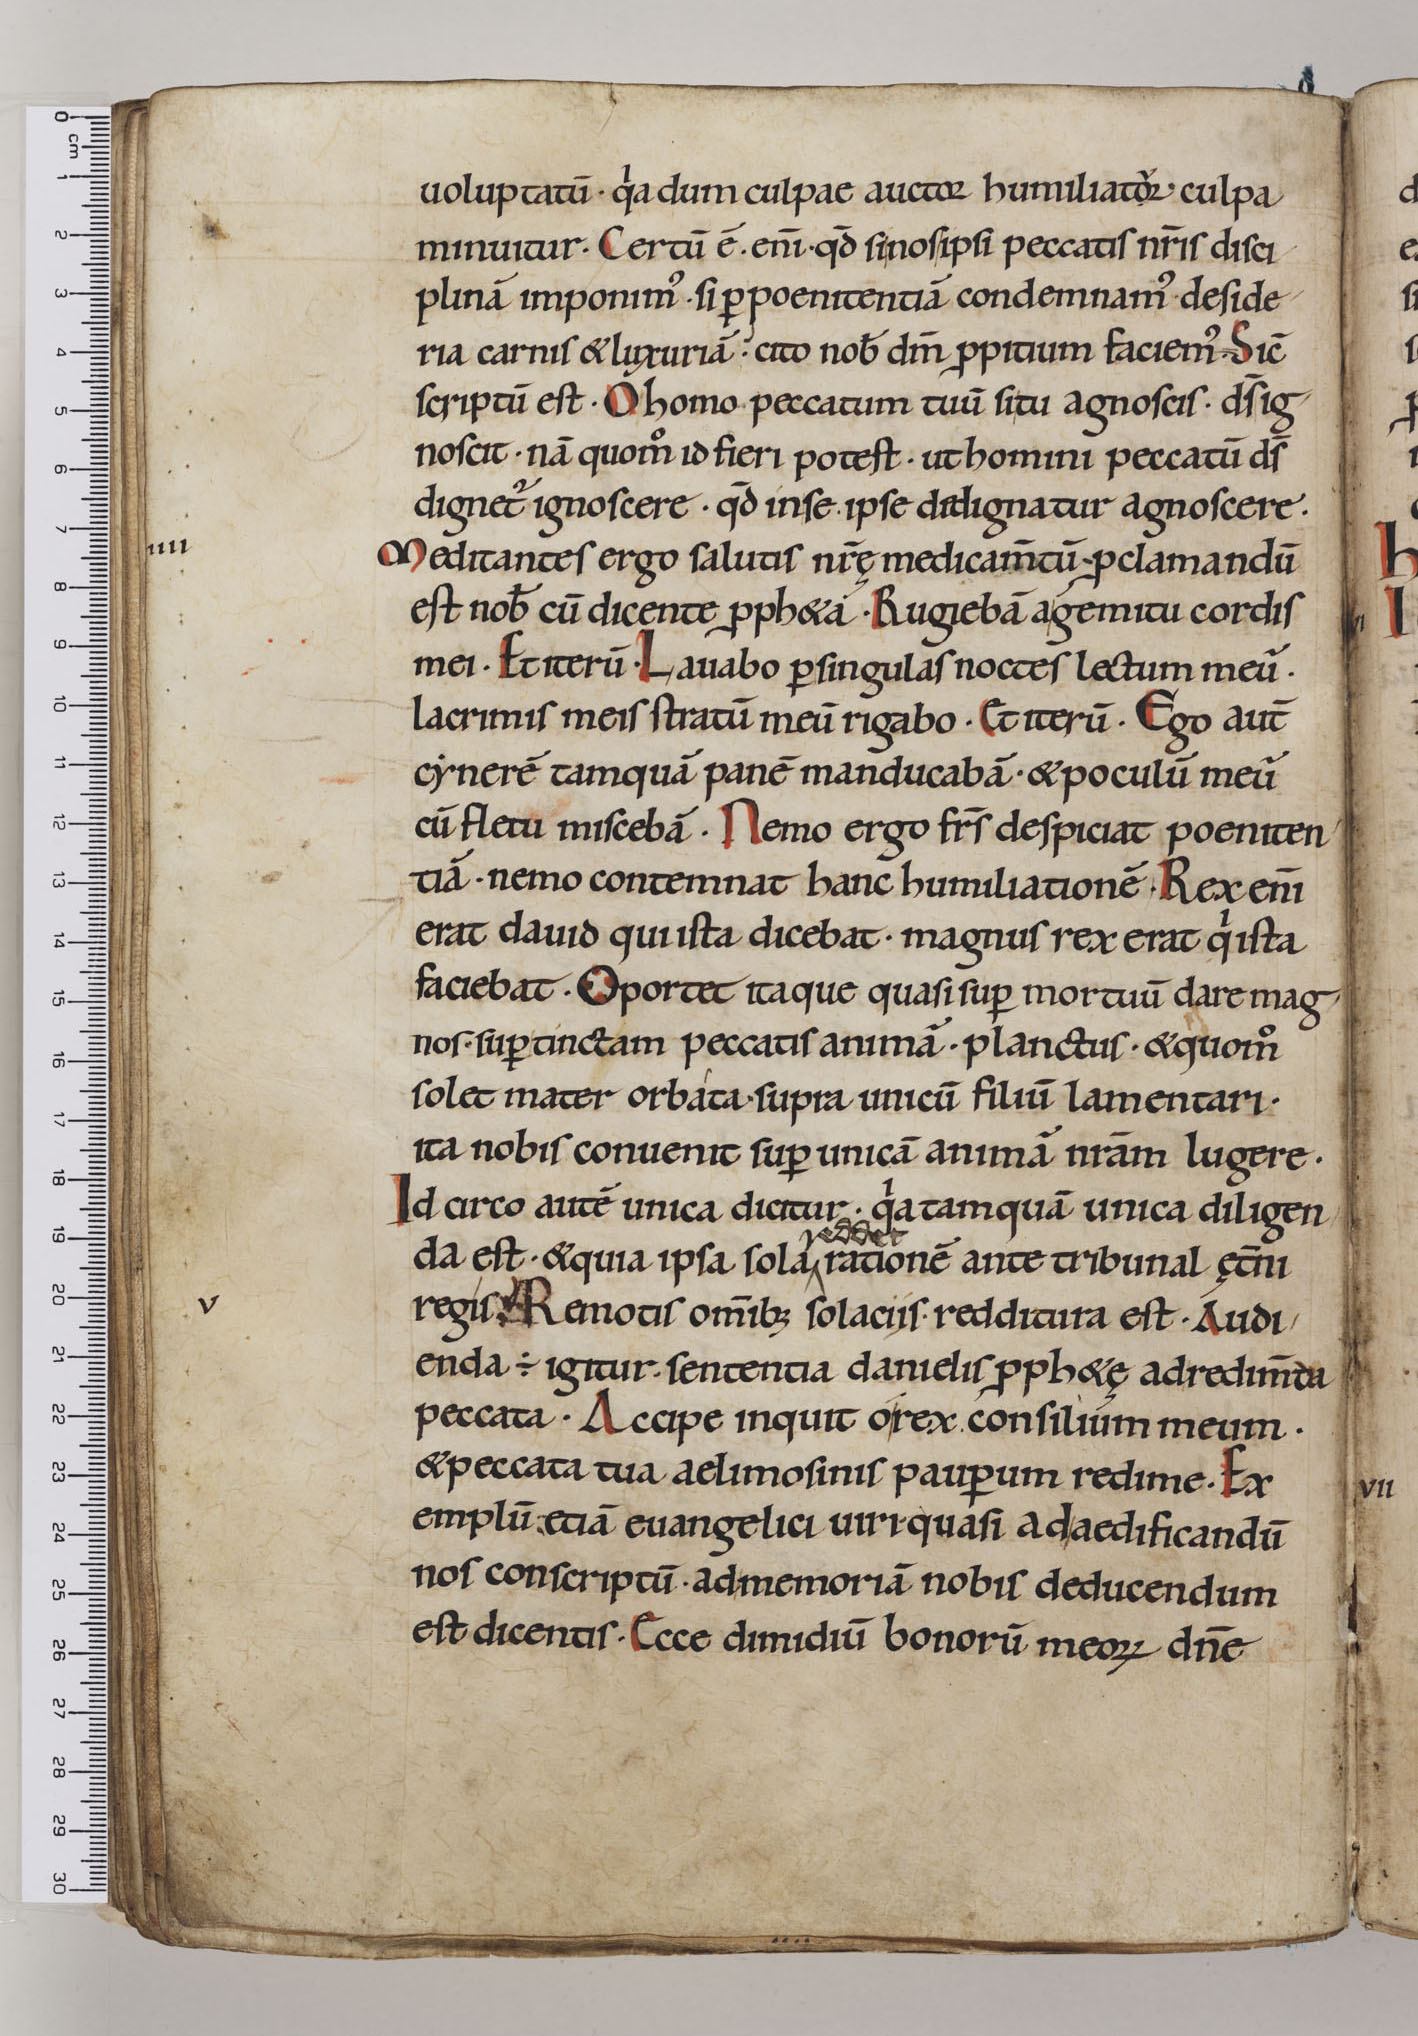 uoluptatū · qⁱa dum culpae auctor humiliatoꝛ · culpa
minuitur · Certū ē · enī · qđ si nosipsi peccatis nr̄is disci
plinā imponim᾿ · si ꝑ poenitentiā condemnam᾿ deside
ria carnis & luxuriā : cito nob̄ dm̄ ꝓpitium faciem᾿ · Sic̄
scriptū est · O homo peccatum tuū si tu agnoscis · ds̄ ig
noscit · nā quomo id fieri potest · ut homini peccatū ds̄
dignet᾿ ignoscere · qđ in se ipse dedignatur agnoscere ·
IIII
Meditantes ergo salutis nr̄ę medicam̄tū · ꝓclamandū
est nob̄ cū dicente ꝓph&a · Rugiebā a gemitu cordis
mei · Et iterū · Lauabo ꝑ singulas noctes lectum meū ·
lacrimis meis stratū meū rigabo · Et iterū · Ego aut̄
cẏnerē tamquā panē manducabā · & poculū meū
cū fletu miscebā · Nemo ergo frs̄ despiciat poeniten
tiā · nemo contemnat hanc humiliationē · Rex enī
erat dauid qui ista dicebat · magnus rex erat qⁱ ista
faciebat · Oportet itaque quasi suꝑ mortuū dare mag
nos · suꝑ tinctam peccatis animā · planctus · & quomo
solet mater orbata · supra unicū filiū lamentari ·
ita nobis conuenit suꝑ unicā animā nrām lugere ·
Id circo autē unica dicitur · qⁱa tamquā unica diligen
reddet
da est · & quia ipsa sola rationē ante tribunal ęt̄ni
V
regis Remotis omīb; solaciis · redditura est · Audi
enda ÷ igitur · sententia danielis ꝓph&ę ad redim̄da
peccata · Accipe inquit o rex consilium meum ·
& peccata tua aelimosinis pauꝑum redime · Ex
emplū etiā euangelici uiri · quasi ad aedificandū
nos conscriptū · ad memoriā nobis deducendum
est dicentis · Ecce dimidiū bonorū meoꝝ dn̄e
VII